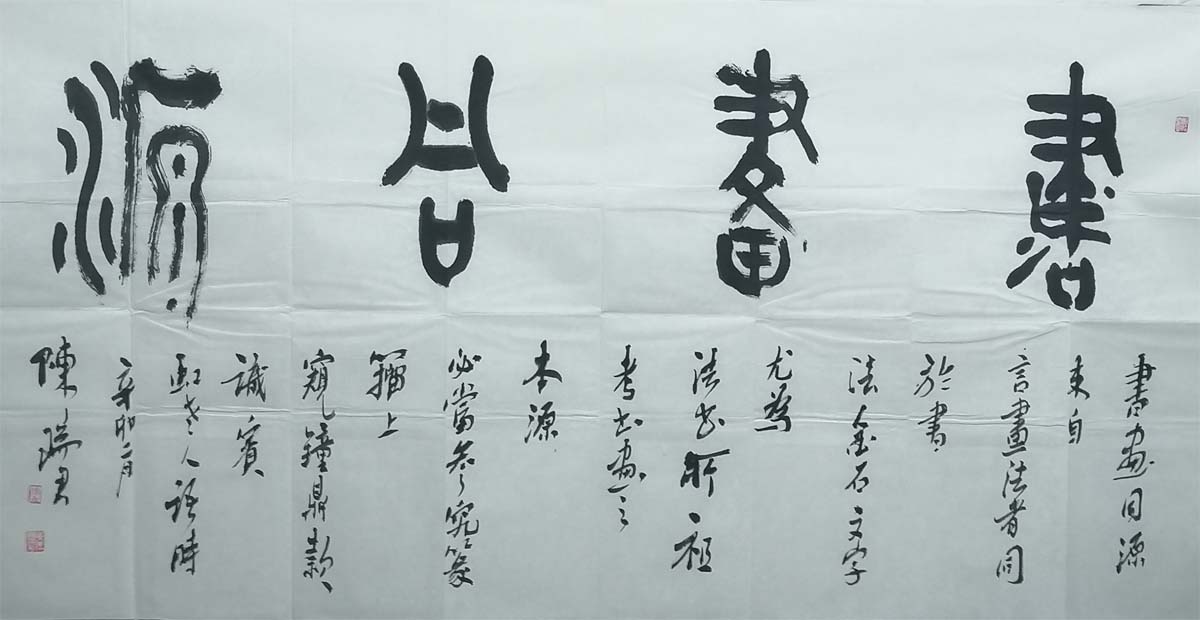 書畫同源
書画同源
来自
言畫法者同
於書
法金石文字
尤為
法書所祖
考書画之
本源
必當参究篆
籀上
窺鐘鼎款
識賓
虹老人語時
辛卯二月
陳瑞君